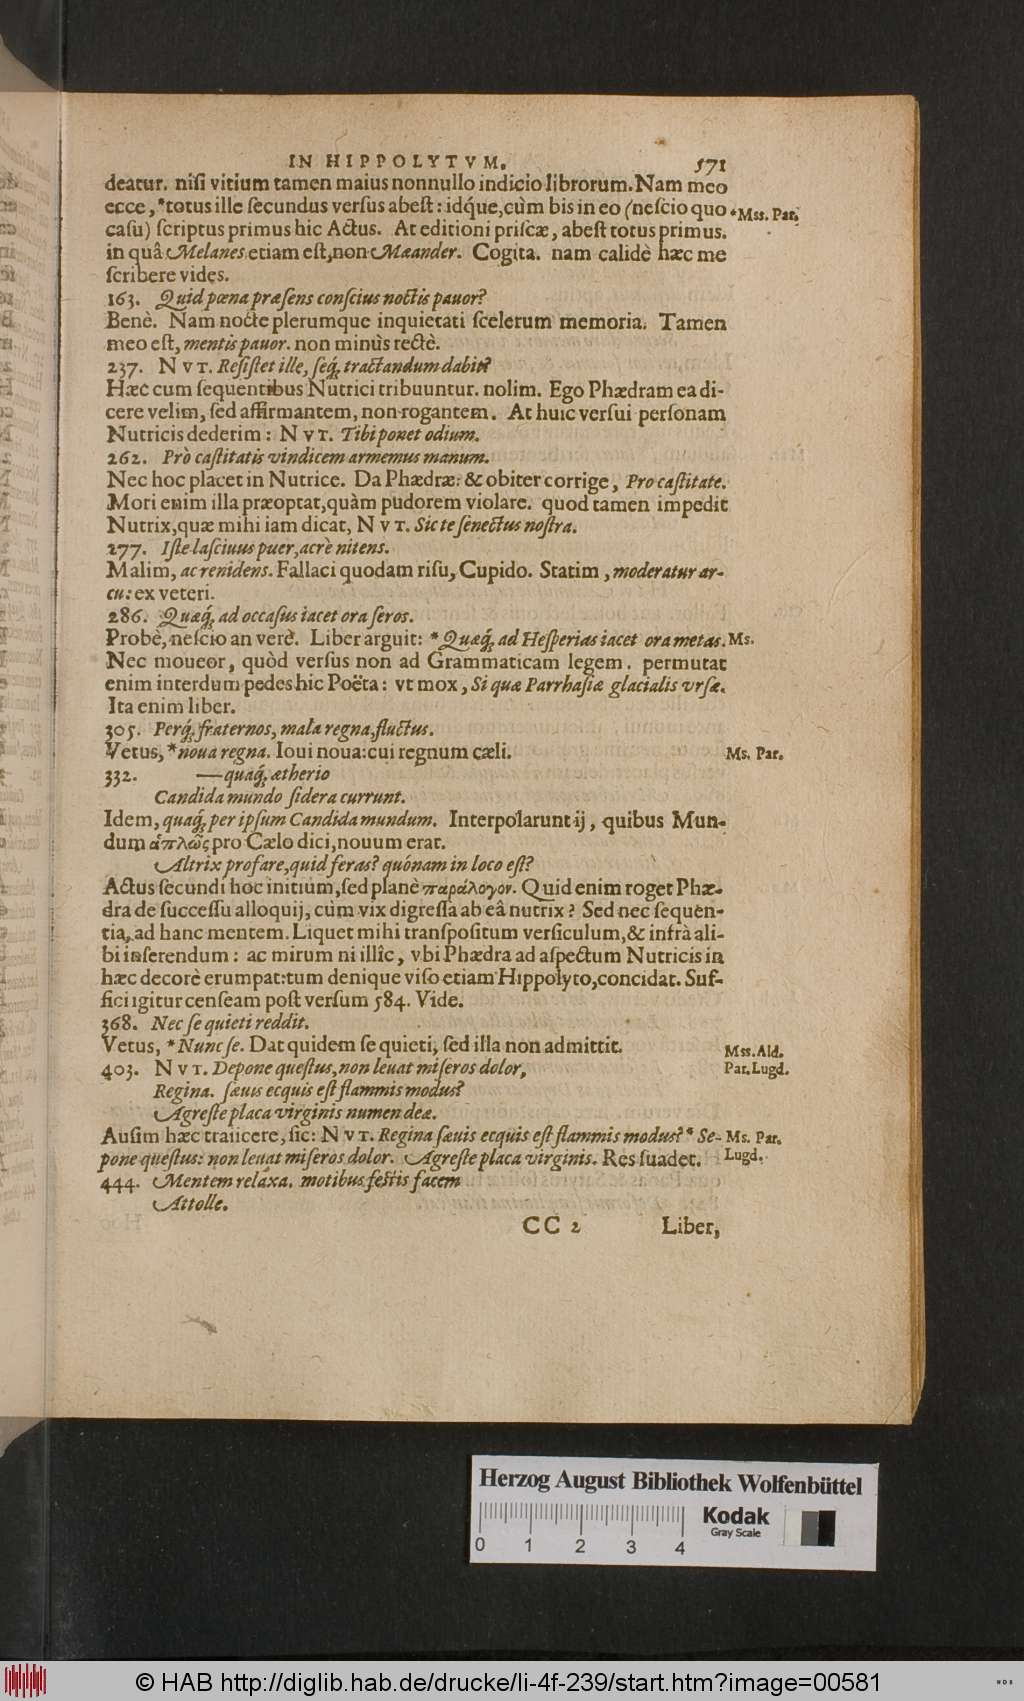 IN HIPPOLYTVM. 571
deatur. nisi vitium tamen maius nonnullo indicio librorum. Nam meo
ecce, *totus ille secundus versus abest: idq́ue, cùm bis in eo (nescio quo *Mss. Par.
casu) scriptus primus hic Actus. At editioni priscæ, abest totus primus.
in quâ Melanes etiam est, non Mæander. Cogita. nam calidè hæc me
scribere vides.
163. Quid pœna præsens conscius noctis pauor?
Benè. Nam nocte plerumque inquietati scelerum memoria. Tamen
meo est, mentis pauor. non minùs rectè.
237. NVT. Resistet ille, seq́; tractandum dabit?
Hæc cum sequentibus Nutrici tribuuntur. nolim. Ego Phædram ea di-
cere velim, sed affirmantem, non rogantem. At huic versui personam
Nutricis dederim: NVT. Tibi ponet odium.
262. Prò castitatis vindicem armemus manum.
Nec hoc placet in Nutrice. Da Phædræ: & obiter corrige, Pro castitate.
Mori enim illa præoptat, quàm pudorem violare. quod tamen impedit
Nutrix, quæ mihi iam dicat, NVT. Sic te senectus nostra.
277. Iste lasciuus puer, acrè nitens.
Malim, ac renidens. Fallaci quodam risu, Cupido. Statim, moderatur ar-
cu: ex veteri.
286. Quæq́; ad occasus iacet ora seros.
Probè, nescio an verè. Liber arguit: * Quæq́; ad Hesperias iacet ora metas. Ms.
Nec moueor, quòd versus non ad Grammaticam legem. permutat
enim interdum pedes hic Poëta: vt mox, Si quæ Parrhasiæ glacialis vrsæ.
Ita enim liber.
305. Perq́; fraternos, mala regna, fluctus.
Vetus, * noua regna. Ioui noua: cui regnum cæli. Ms. Par.
332. — quaq́; ætherio
Candida mundo sidera currunt.
Idem, quaq́; per ipsum Candida mundum. Interpolarunt ij, quibus Mun-
dum ἁπλῶς pro Cælo dici, nouum erat.
Altrix profare, quid feras? quónam in loco est?
Actus secundi hoc initium, sed planè παράλογον. Quid enim roget Phæ-
dra de successu alloquij, cùm vix digressa ab eâ nutrix? Sed nec sequen-
tia, ad hanc mentem. Liquet mihi transpositum versiculum, & infrà ali-
bi inserendum: ac mirum ni illîc, vbi Phædra ad aspectum Nutricis in
hæc decorè erumpat: tum denique viso etiam Hippolyto, concidat. Suf-
fici igitur censeam post versum 584. Vide.
368. Nec se quieti reddit.
Vetus, * Nunc se. Dat quidem se quieti, sed illa non admittit. Mss. Ald.
403. NVT. Depone questus, non leuat miseros dolor, Par. Lugd.
Regina. sæuis ecquis est flammis modus?
Agreste placa virginis numen deæ.
Ausim hæc traiicere, sic: NVT. Regina sæuis ecquis est flammis modus? * Se- Ms. Par.
pone questus: non leuat miseros dolor. Agreste placa virginis. Res suadet. Lugd.
444. Mentem relaxa. motibus festis facem
Attolle.
CC 2 Liber,
Herzog August Bibliothek Wolfenbüttel
Kodak
Gray Scale
0 1 2 3 4
© HAB http://diglib.hab.de/drucke/li-4f-239/start.htm?image=00581